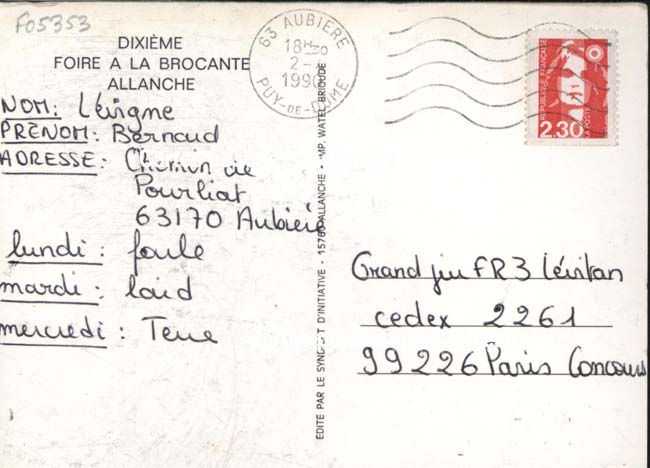 F05353
DIXIÈME
FOIRE A LA BROCANTE
ALLANCHE
63 AUBIERE
18H30
2-
1990
PUY-DE-DOME
REPUBLIQUE FRANÇAISE
LA POSTE
2,30
NOM: Lévigne
PRÉNOM: Bernard
ADRESSE: Chemin de
Pourliat
63170 Aubière
lundi : foule
mardi : laid
mercredi : Terre
EDITE PAR LE SYNDICAT D'INITIATIVE - 15760 ALLANCHE - IMP. WATEL BRIOUDE
Grand jeu FR3 Lévitan
cedex 2261
99226 Paris Concours